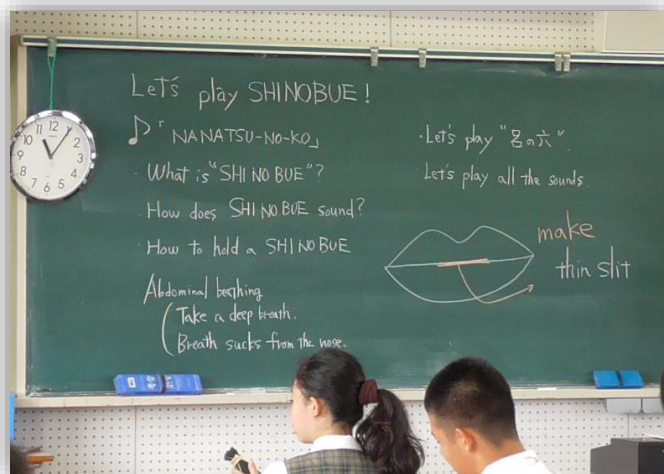 Let's play SHINOBUE!
♪「NANATSU-NO-KO」
・What is "SHINOBUE"?
・How does SHINOBUE sound?
・How to hold a SHINOBUE
Abdominal
Take a deep breath.
Breath sucks from the nose.
・Let's play "呂の六".
Let's play all the sounds.
make
thin slit
12
1
2
3
4
5
6
7
8
9
10
11